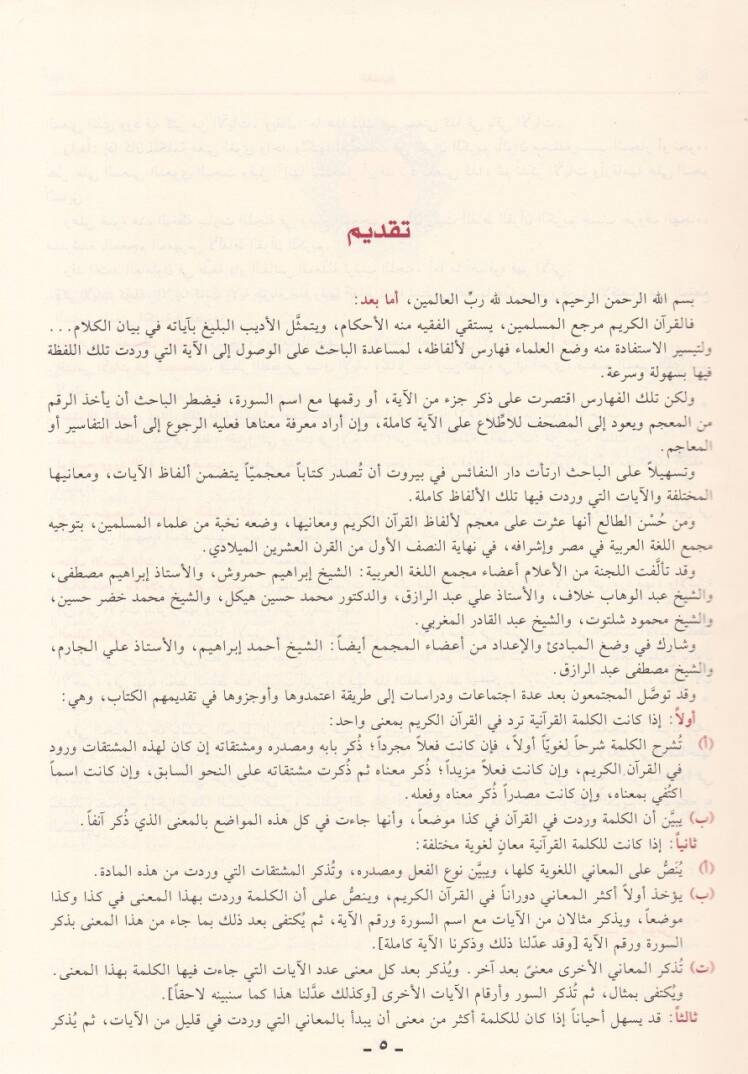 تقديم
بسم الله الرحمن الرحيم، والحمد لله ربِّ العالمين، أما بعد:
فالقرآن الكريم مرجع المسلمين، يستقي الفقيه منه الأحكام، ويتمثَّل الأديب البليغ بآياته في بيان الكلام...
ولتيسير الاستفادة منه وضع العلماء فهارس لألفاظه، لمساعدة الباحث على الوصول إلى الآية التي وردت تلك اللفظة
فيها بسهولة وسرعة.
ولكن تلك الفهارس اقتصرت على ذكر جزء من الآية، أو رقمها مع اسم السورة، فيضطر الباحث أن يأخذ الرقم
من المعجم ويعود إلى المصحف للاطِّلاع على الآية كاملة، وإن أراد معرفة معناها فعليه الرجوع إلى أحد التفاسير أو
المعاجم.
وتسهيلاً على الباحث ارتأت دار النفائس في بيروت أن تُصدر كتاباً معجميّاً يتضمن ألفاظ الآيات، ومعانيها
المختلفة والآيات التي وردت فيها تلك الألفاظ كاملة.
ومن حُسْن الطالع أنها عثرت على معجم لألفاظ القرآن الكريم ومعانيها، وضعه نخبة من علماء المسلمين، بتوجيه
مجمع اللغة العربية في مصر وإشرافه، في نهاية النصف الأول من القرن العشرين الميلادي.
وقد تألَّفت اللجنة من الأعلام أعضاء مجمع اللغة العربية: الشيخ إبراهيم حمروش، والأستاذ إبراهيم مصطفى،
والشيخ عبد الوهاب خلاف، والأستاذ علي عبد الرازق، والدكتور محمد حسين هيكل، والشيخ محمد خضر حسين،
والشيخ محمود شلتوت، والشيخ عبد القادر المغربي.
وشارك في وضع المبادئ والإعداد من أعضاء المجمع أيضاً: الشيخ أحمد إبراهيم، والأستاذ علي الجارم،
والشيخ مصطفى عبد الرازق.
وقد توصَّل المجتمعون بعد عدة اجتماعات ودراسات إلى طريقة اعتمدوها وأوجزوها في تقديمهم الكتاب، وهي:
أولاً: إذا كانت الكلمة القرآنية ترد في القرآن الكريم بمعنى واحد:
(أ) تُشرح الكلمة شرحاً لغويّاً أولاً، فإن كانت فعلاً مجرداً؛ ذُكر بابه ومصدره ومشتقاته إن كان لهذه المشتقات ورود
في القرآن الكريم، وإن كانت فعلاً مزيداً؛ ذُكر معناه ثم ذُكرت مشتقاته على النحو السابق، وإن كانت اسماً
اكتُفي بمعناه، وإن كانت مصدراً ذُكر معناه وفعله.
(ب) يبيَّن أن الكلمة وردت في القرآن في كذا موضعاً، وأنها جاءت في كل هذه المواضع بالمعنى الذي ذُكر آنفاً.
ثانياً: إذا كانت للكلمة القرآنية معانٍ لغوية مختلفة:
(أ) يُنَصُّ على المعاني اللغوية كلها، ويبيَّن نوع الفعل ومصدره، وتُذكر المشتقات التي وردت من هذه المادة.
(ب) يؤخذ أولاً أكثر المعاني دوراناً في القرآن الكريم، وينصُّ على أن الكلمة وردت بهذا المعنى في كذا وكذا
موضعاً، ويذكر مثالان من الآيات مع اسم السورة ورقم الآية، ثم يُكتفى بعد ذلك بما جاء من هذا المعنى بذكر
السورة ورقم الآية [وقد عدّلنا ذلك وذكرنا الآية كاملة].
(ت) تُذكر المعاني الأخرى معنىً بعد آخر. ويُذكر بعد كل معنى عدد الآيات التي جاءت فيها الكلمة بهذا المعنى.
ويُكتفى بمثال، ثم تُذكر السور وأرقام الآيات الأخرى [وكذلك عدَّلنا هذا كما سنبينه لاحقاً].
ثالثاً: قد يسهل أحياناً إذا كان للكلمة أكثر من معنى أن يبدأ بالمعاني التي وردت في قليل من الآيات، ثم يُذكر
ـ ٥ ـ